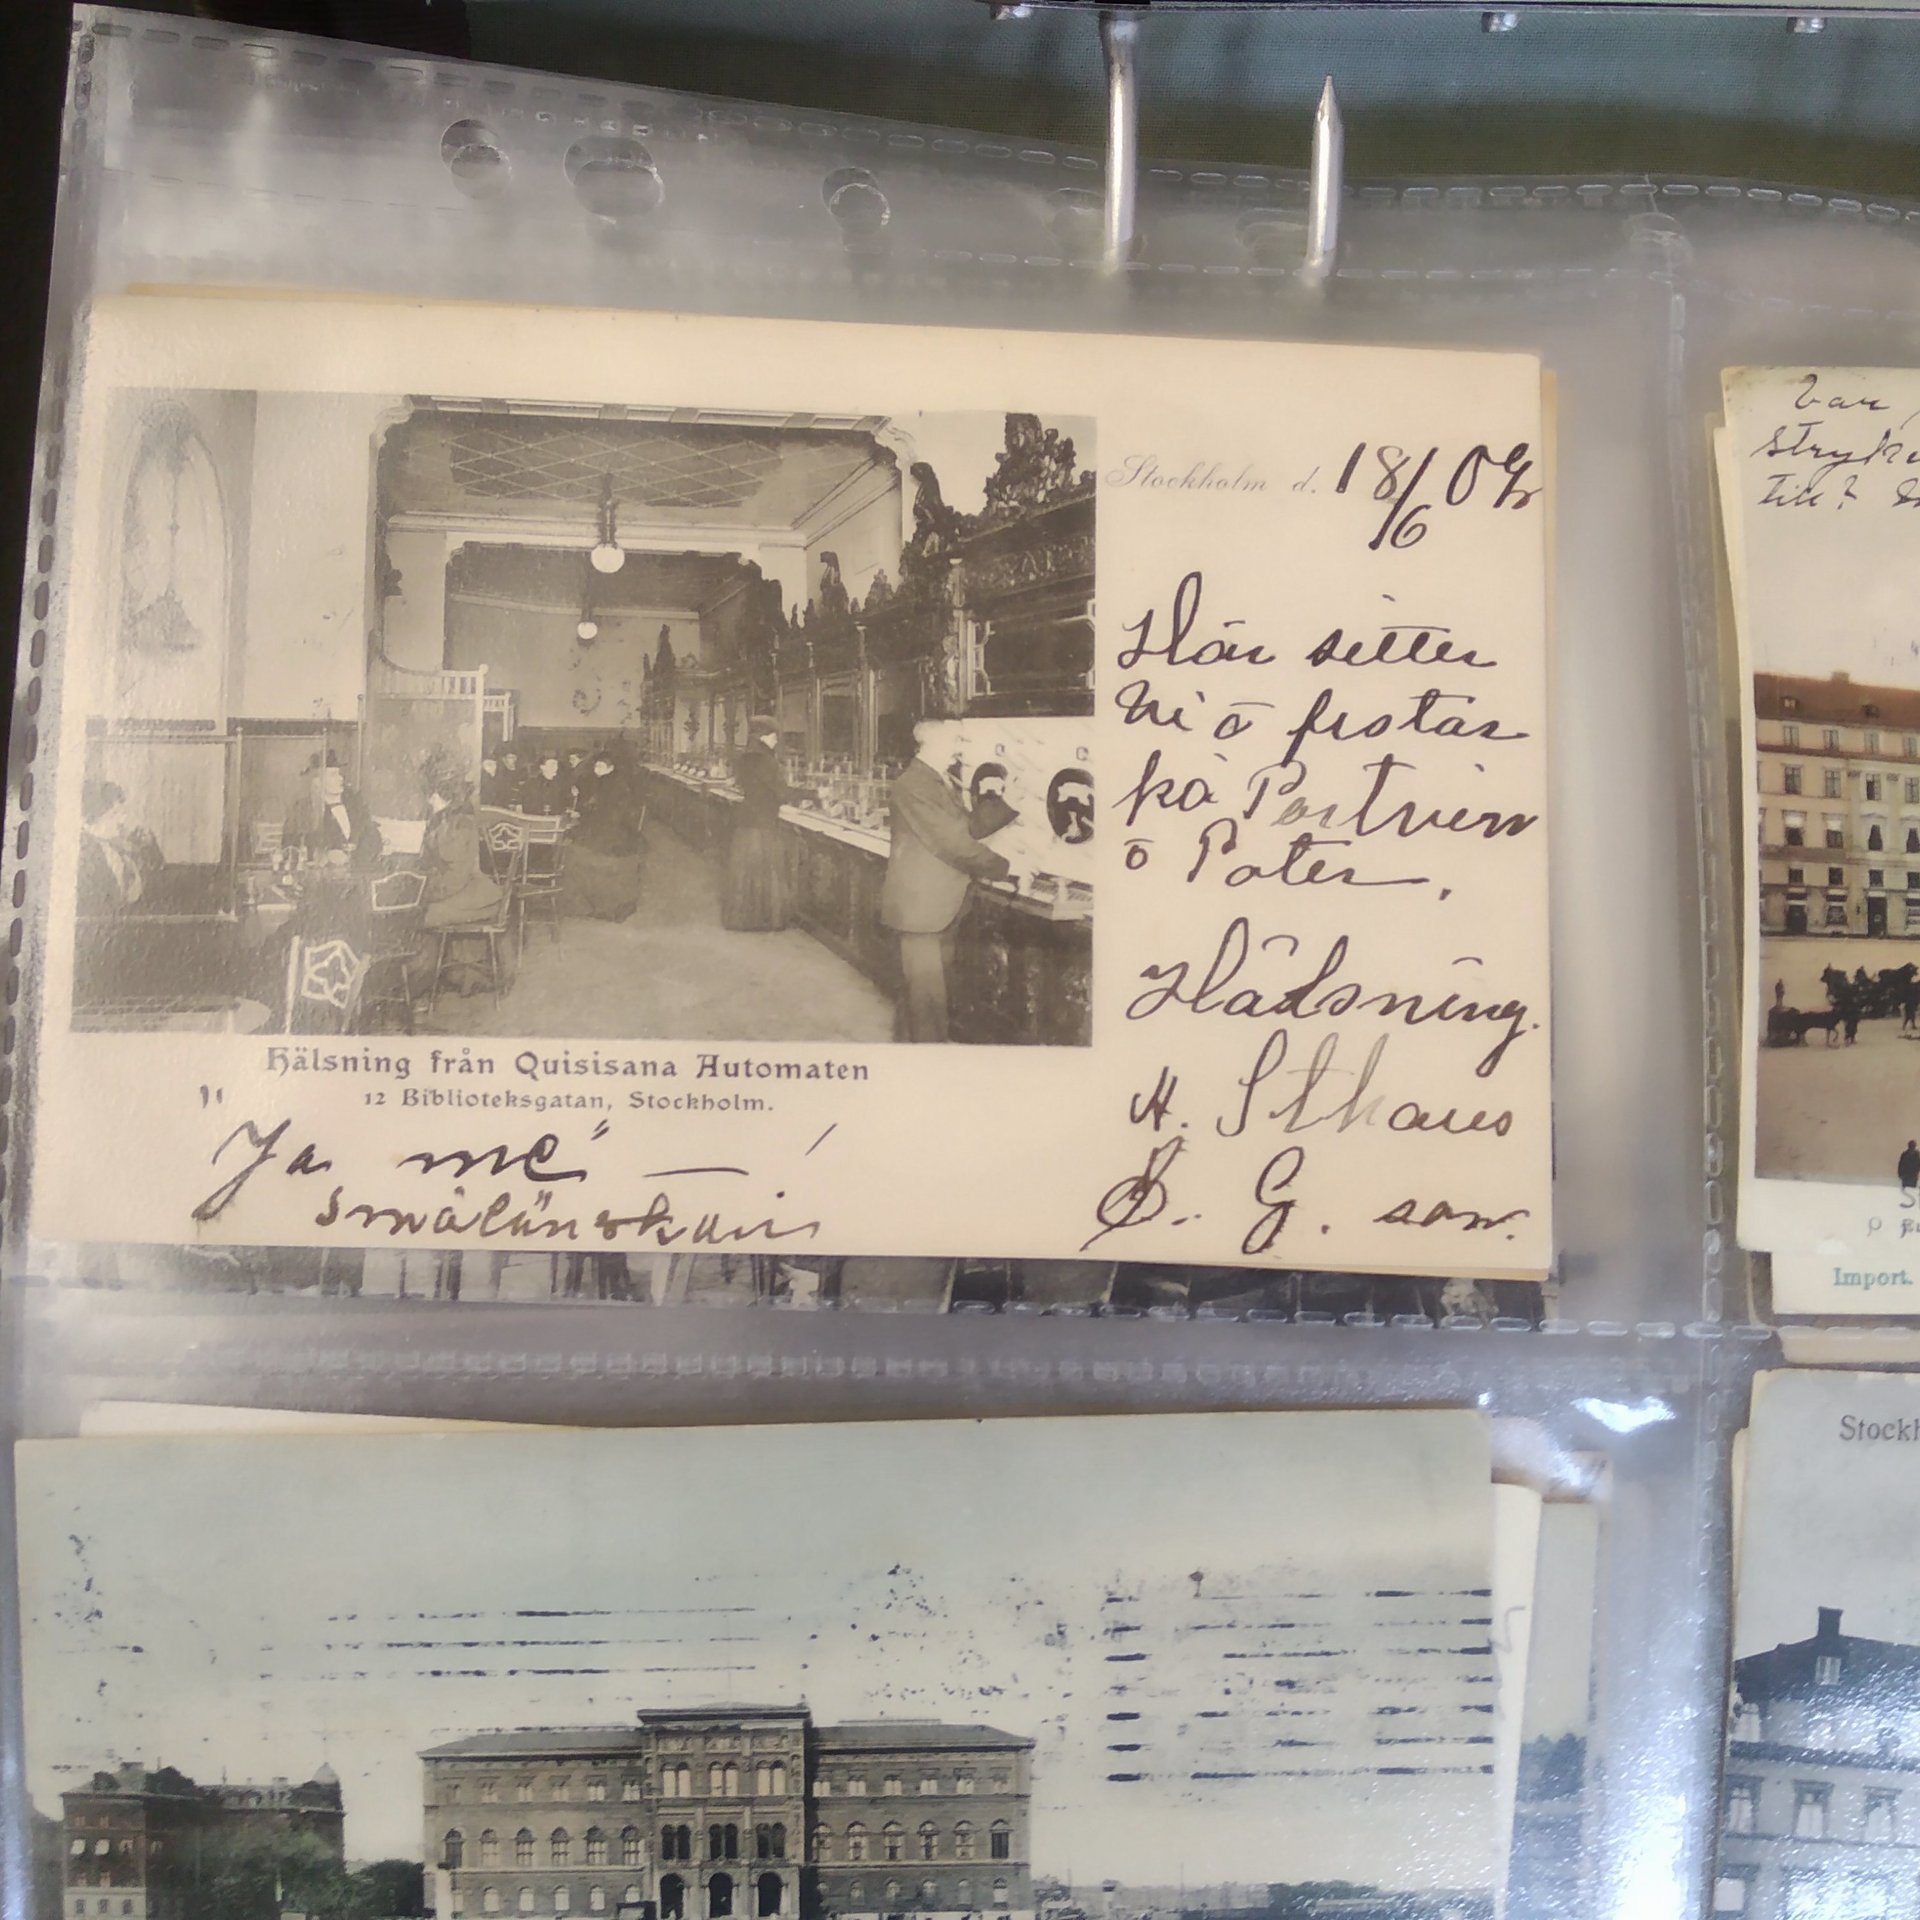 Stockholm d. 18/6 04
Här sitter
Ni o frotar
på Portvin
o Pater.
Hälsning.
A. Sthaus
G. son.
Hälsning från Quisisana Automaten
12 Biblioteksgatan, Stockholm.
"Ja me" — !
smålänskan
Import.
Stockh